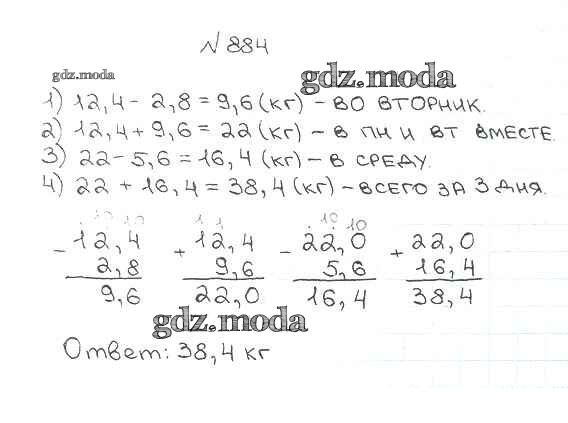 № 884
gdz.moda
gdz.moda
1) 12,4 - 2,8 = 9,6 (кг) - во вторник.
2) 12,4 + 9,6 = 22 (кг) - в пн и вт вместе.
3) 22 - 5,6 = 16,4 (кг) - в среду.
4) 22 + 16,4 = 38,4 (кг) - всего за 3 дня.
10 10 1 1 10 10
- 12,4 + 12,4 - 22,0 + 22,0
2,8 9,6 5,6 16,4
9,6 22,0 16,4 38,4
gdz.moda
Ответ: 38,4 кг